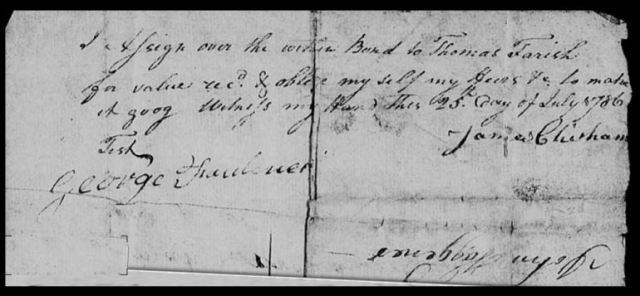 I Assign over the within Bond to Thomas Farish
for value recd. & oblige my self my Heirs &c to make
it goog Witness my Hand This 25th. Day of July 1786
James Chisham
Test
George Faulener
John